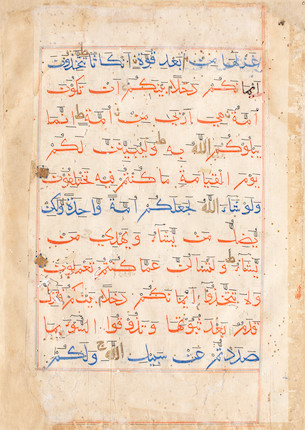 غزلها من بعد قوة انكاثا تتخذون
ايمانكم دخلا بينكم ان تكون
امة هي اربى من امة انما
يبلوكم الله به وليبينن لكم
يوم القيامة ما كنتم فيه تختلفون
ولو شاء الله لجعلكم امة واحدة ولكن
يضل من يشاء ويهدي من
يشاء ولتسئلن عما كنتم تعملون
ولا تتخذوا ايمانكم دخلا بينكم فتزل
قدم بعد ثبوتها وتذوقوا السوء بما
صددتم عن سبيل الله ولكم